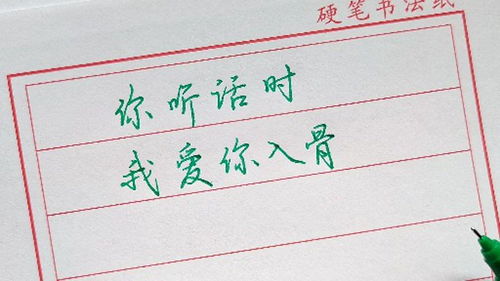 硬笔书法纸
你听话时
我爱你入骨